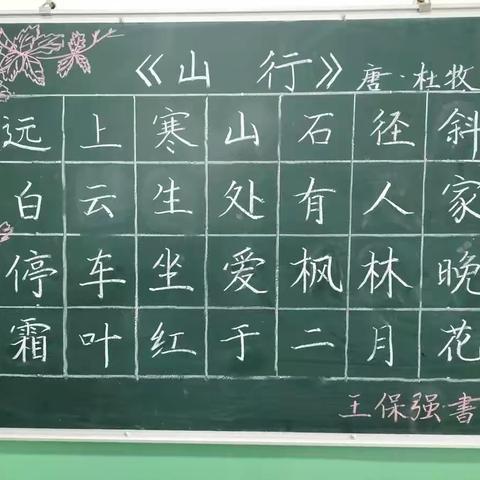 《山 行》
唐·杜牧
远上寒山石径斜
白云生处有人家
停车坐爱枫林晚
霜叶红于二月花
王保强·書